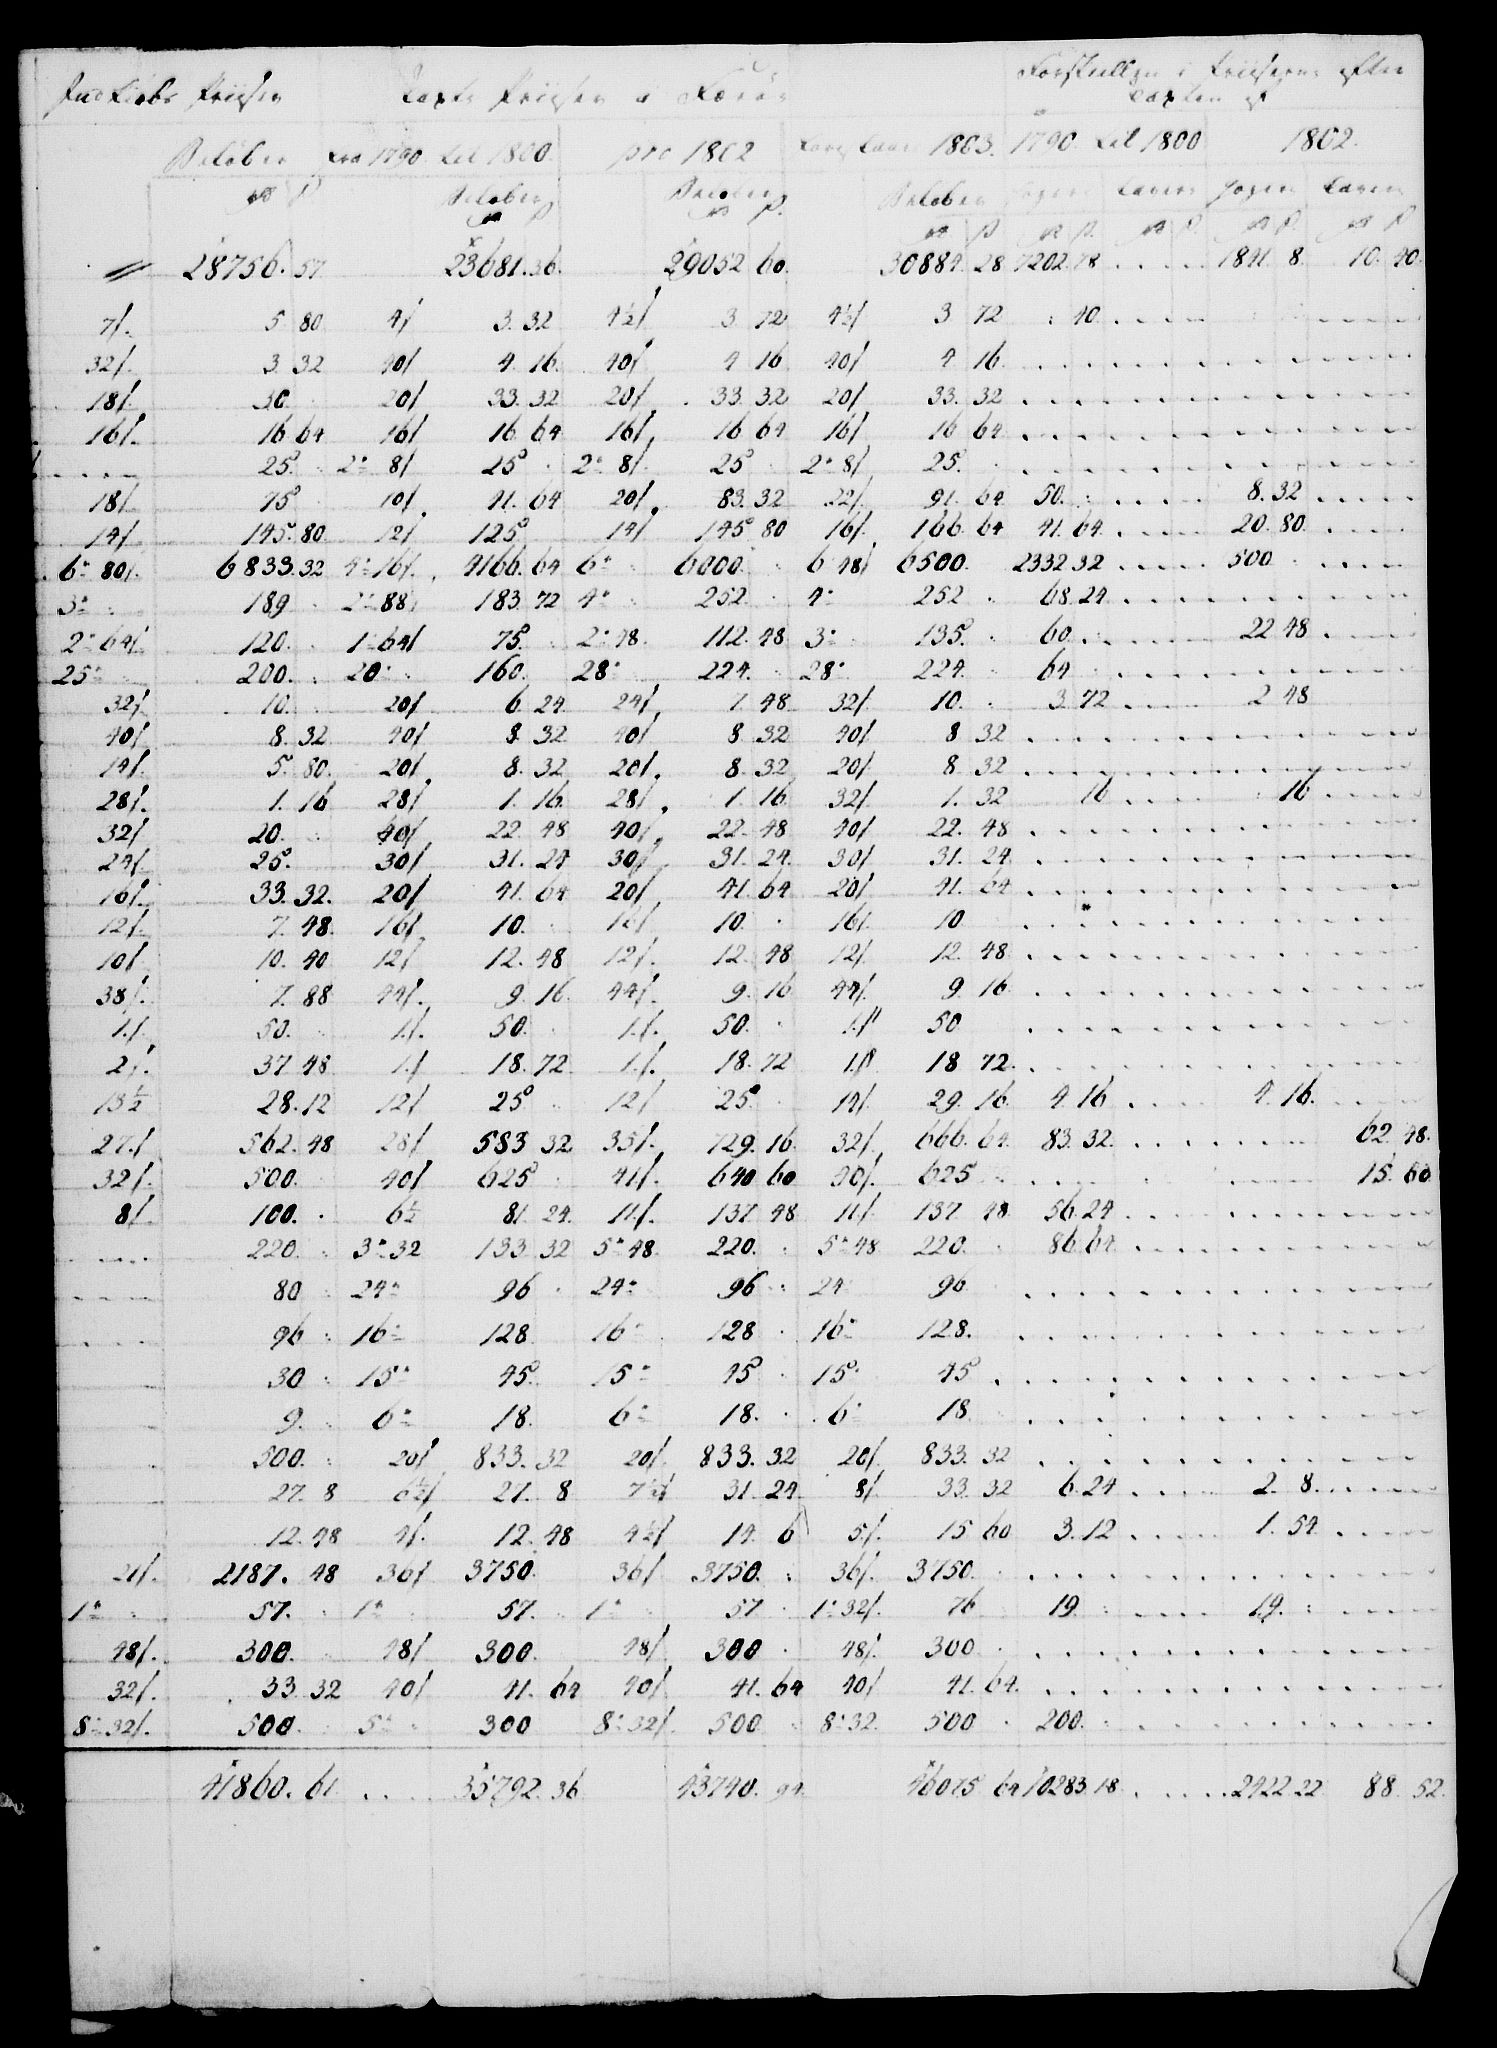 Indkiøbs Priiser Taxte Priiser i Færøe Forskiellen i Priiserne efter
Taxten af
Beløber fra 1790 til 1800. pro 1802 1803. 1790 til 1800 1802.
Beløber Beløber Beløber høyere lavere høyere lavere
28756. 57 23681. 36. 29052 60. 30884. 28 7202. 78 . . . . . 1841. 8. 10. 40.
7/. 5. 80. 4/ 3. 32 4½/ 3 72 4½/ 3 72 : 40. . . . .
32/. 3. 32 40/ 4. 16. 40/ 4 16 40/ 4 16. . . . .
18/. 30. 20/ 33. 32 20/ 33. 32 20/ 33. 32 . . . .
16/. 16 64 16/ 16. 64 16/. 16 64 16/ 16 64. . . . .
. . . . 25. 2 8/ 25 2 8/. 25 2 8/ 25. . . . .
18/. 75 10/. 41. 64 20/. 83. 32 22/. 91. 64 50. . . . . 8. 32 . . . .
14/. 145. 80 12/ 125 14/. 145 80 16/. 166. 64 41. 64. . . . . 20. 80. . . . .
6 80/. 6833. 32 4 16/. 4166. 64 6 6000. 6 48/ 6500. 2332 32 . . . . 500 . . . .
3 189 2 88/ 183. 72 4 252. 4 252 68. 24. . . . .
2 64/. 120. 1 64/ 75. 2 48. 112. 48 3 135. 60. . . . . 22 48. . . . .
25 200. 20 160. 28 224. 28 224. 64 . . . .
32/. 10. 20/ 6. 24. 24/. 7. 48 32/. 10. 3. 72 . . . . 2 48
40/. 8. 32 40/ 8. 32 40/ 8. 32 40/ 8 32 . . . .
14/. 5. 80. 20/. 8. 32 20/. 8. 32 20/. 8 32 . . . .
28/. 1. 16 28/ 1. 16. 28/. 1. 16 32/. 1. 32 16 . . . . 16
32/ 20. 40/ 22. 48 40/. 22. 48 40/ 22. 48 . . . .
24/. 25. 30/ 31. 24 30/ 31. 24. 30/ 31. 24. . . . .
16/. 33. 32. 20/ 41. 64 20/ 41. 64 20/ 41. 64 . . . .
12/. 7. 48. 16/ 10. 16/ 10. 16/. 10 . . . .
10/. 10. 40 12/ 12. 48 12/. 12. 48 12/. 12. 48. . . . .
38/. 7. 88 44/. 9. 16. 44/. 9. 16 44/. 9. 16 . . . .
1/. 50. 1./. 50. 1./. 50. 1./ 50 . . . .
2/. 37 48 1./ 18. 72 1./. 18. 72 1/ 18 72. . . . .
13½ 28. 12 12/ 25 12/ 25. 14/. 29. 16. 4. 16 . . . . 4. 16. . . . .
27./ 562. 48 28/ 583 32 35/. 729. 16. 32/. 666. 64. 83. 32. . . . . 62. 48.
32/. 500. 40/ 625 41/. 640 60 40/. 625 . . . . 15. 60
8/. 100. 6½ 81. 24. 11/. 137. 48. 11/. 137. 48. 56. 24. . . . .
. . . . 220. 3 32 133. 32 5 48. 220. 5 48 220. 86. 64. . . . .
. . . . 80 24 96 24 96 24 96. . . . .
. . . . 96 16 128 16 128 16 128. . . . .
30 15 45. 15 45 15 45 . . . .
9. 6 18. 6 18. 6 18. . . . .
500. 20/ 833. 32 20/. 833. 32 20/. 833. 32 . . . .
27. 8 6½/ 27. 8 7½/ 31. 24. 8/. 33. 32 6. 24 . . . . 2. 8. . . . .
12. 48 4/. 12. 48 4½/ 14. 6 5/. 15. 60 3. 12 . . . . 1. 54 . . . .
21/. 2187. 48 36/ 3750. 36/ 3750. 36/. 3750. . . . .
1 57. 1 57. 1 57 1 32/. 76 19. . . . . 19. . . . .
48/. 300. 48/ 300. 48/ 300 48/. 300 . . . .
32/. 33 32 40/ 41. 64 40/ 41. 64 40/ 41. 64. . . . .
8 32/. 500. 5 300 8 32/. 500 8 32. 500 200. . . . .
41860. 61 . . . . 35792. 36 43740. 94. 46075 64 10283. 18 . . . . . 2422 22. 88. 52.